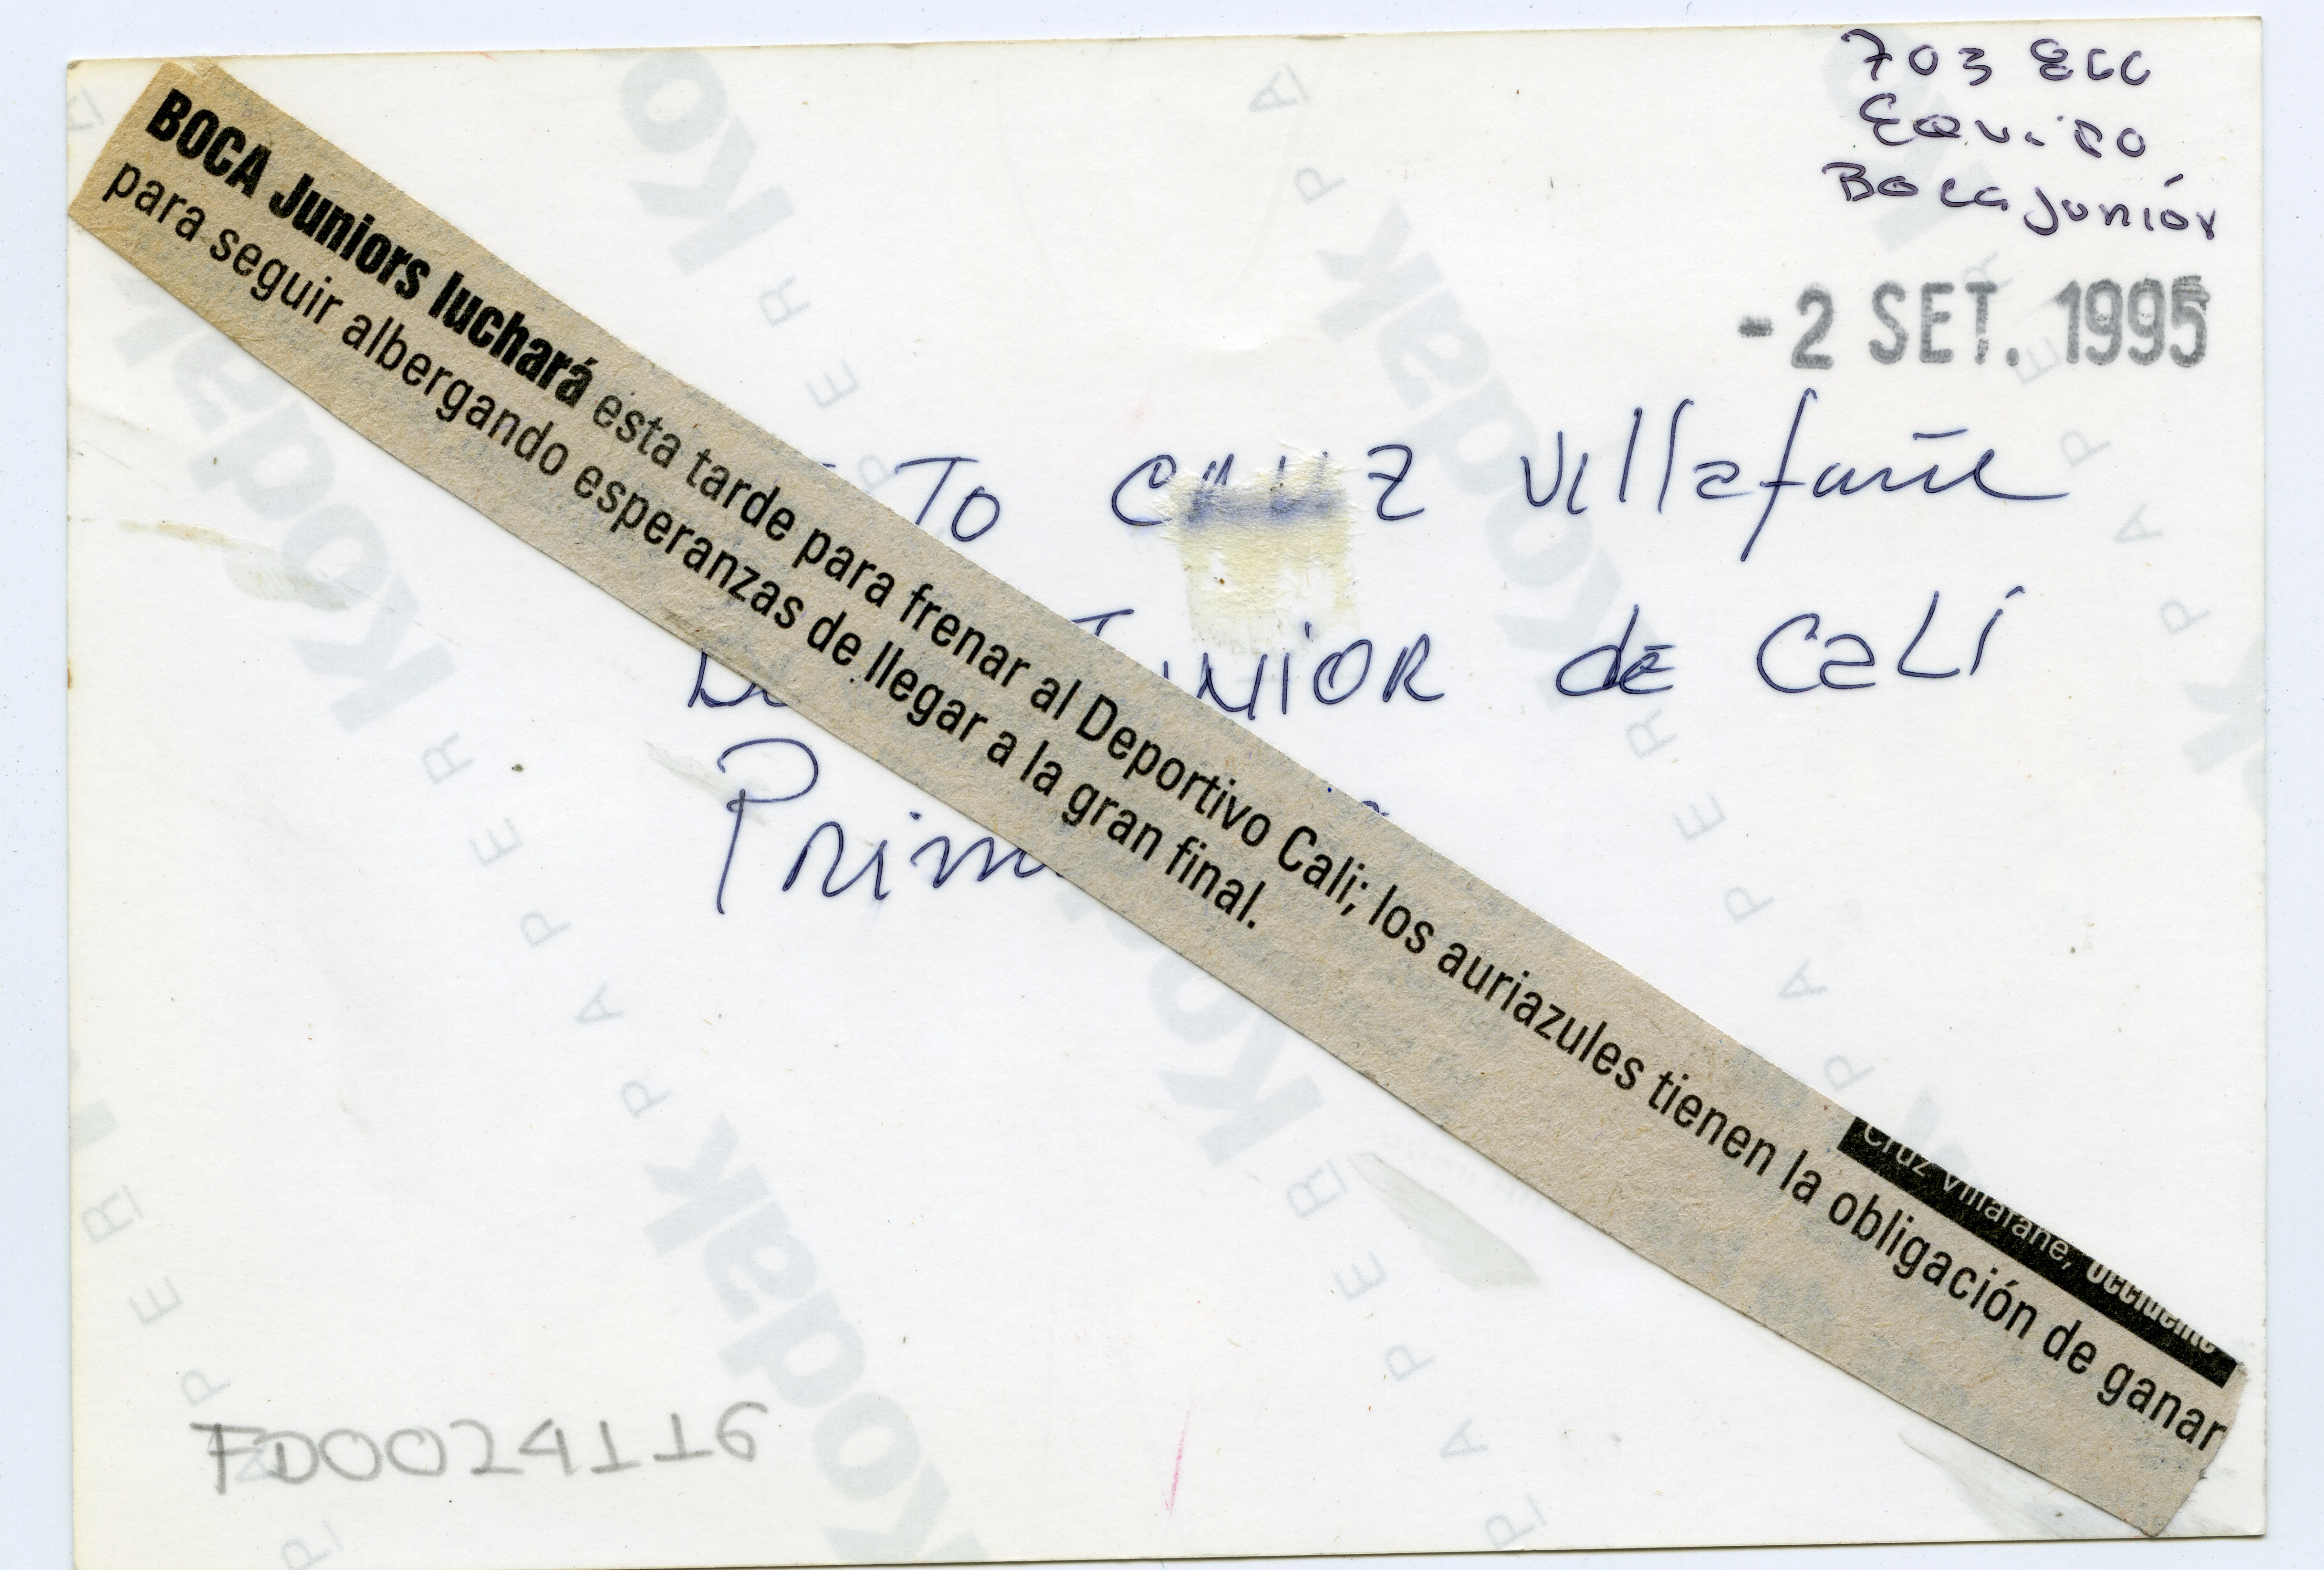 703 ECC
Equipo
Boca Junior
- 2 SET. 1995
BOCA Juniors luchará esta tarde para frenar al Deportivo Cali; los auriazules tienen la obligación de ganar
para seguir albergando esperanzas de llegar a la gran final.
Cruz Villafañe, Occidente
TO CRUZ Villafañe
JUNIOR de CaLí
Prim
FD0024116
Kodak
PAPER